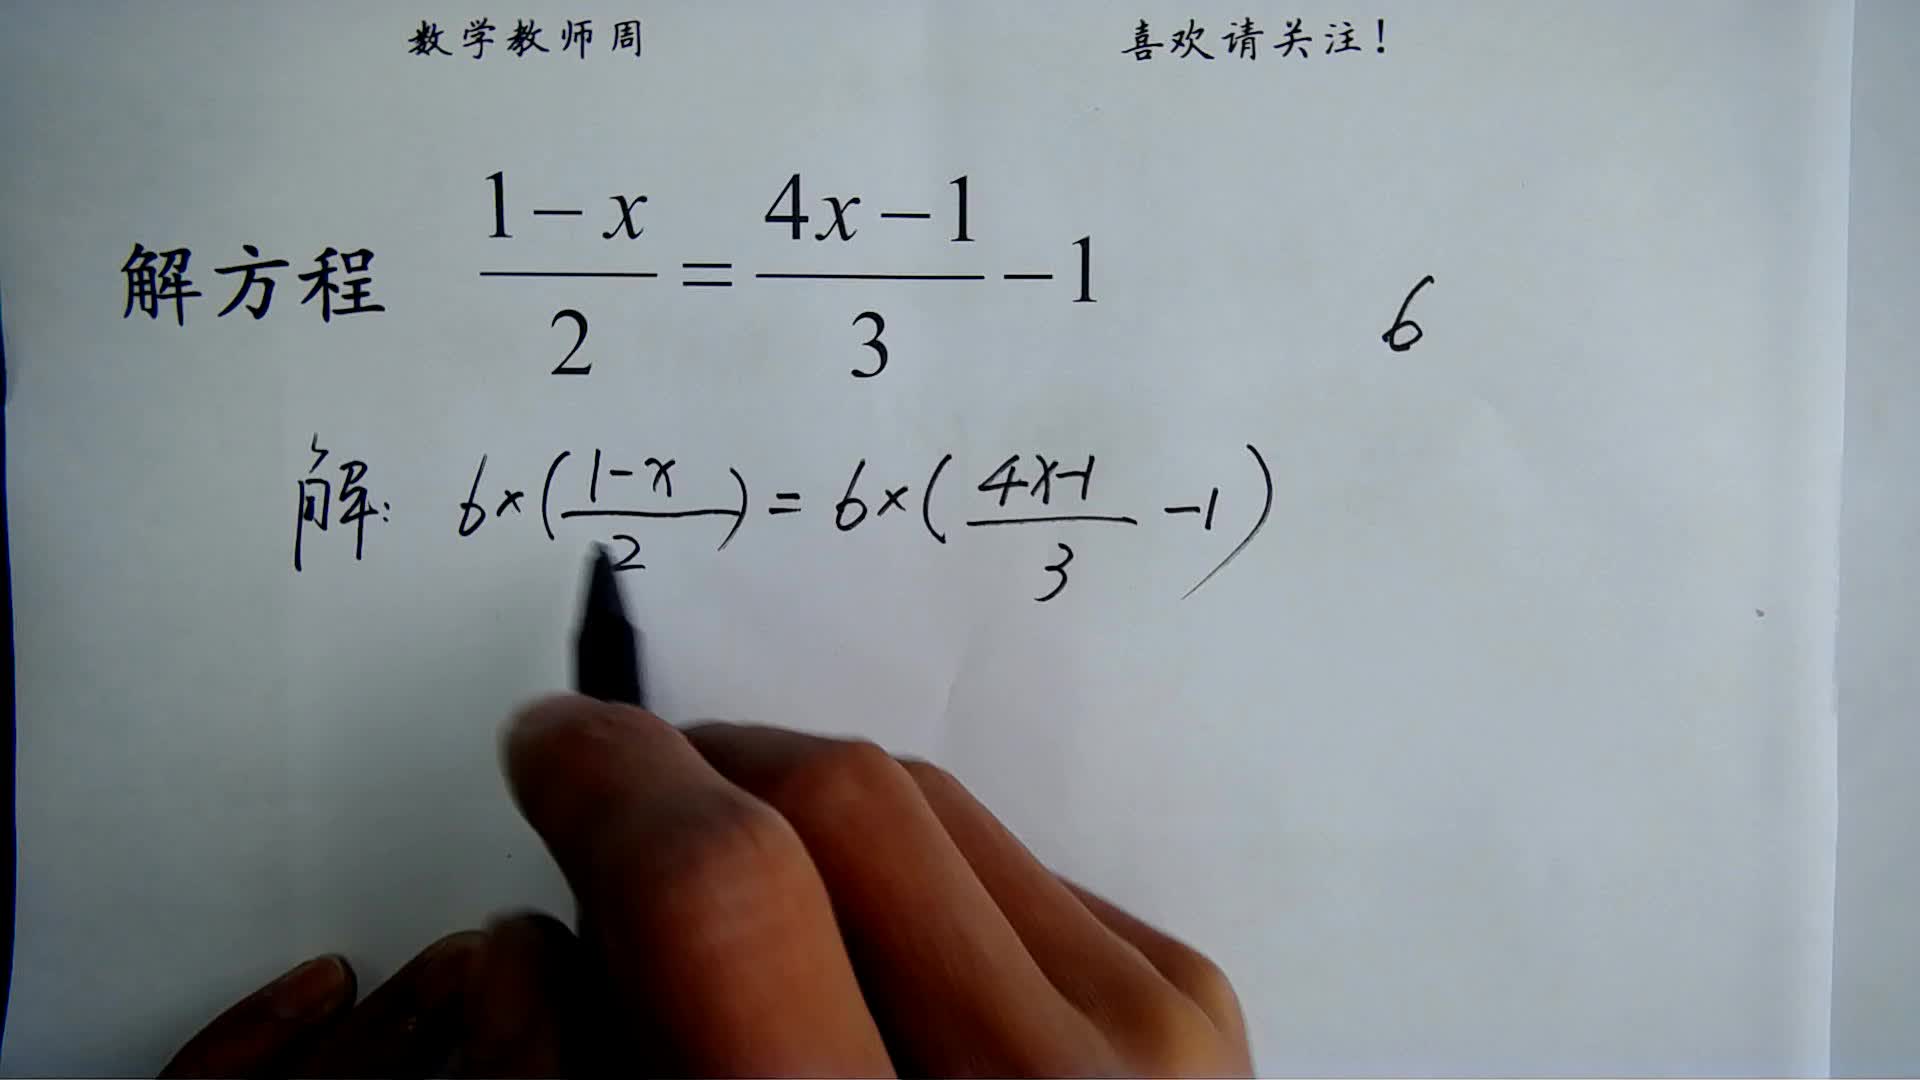 数学教师周 喜欢请关注!
解方程 \frac{1-x}{2}=\frac{4x-1}{3}-1
6
解: 6×(\frac{1-x}{2})=6×(\frac{4x-1}{3}-1)